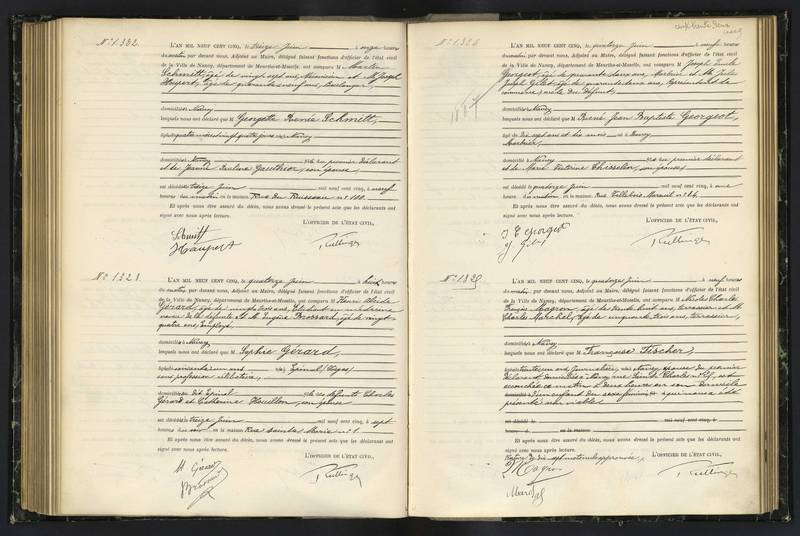 N° 1332
L'AN MIL NEUF CENT CINQ, le treize Juin à onze heures
du matin par devant nous, Adjoint au Maire, délégué faisant fonctions d'officier de l'état civil
de la Ville de Nancy, département de Meurthe-et-Moselle, ont comparu M Martin
Schmitt, âgé de vingt sept ans, et M Joseph
Haupert, âgé de quarante neuf ans, Boulanger,
domiciliés à Nancy
lesquels nous ont déclaré que M Georgette Renée Schmitt,
âgée quatre jours née à Nancy
domiciliée à Nancy fille du premier déclarant
et de Jeanne Pauline Gauthier, son épouse,
est décédée le treize Juin mil neuf cent cinq, à neuf
heures du matin en la maison Rue du Ruisseau n° 100
Et après nous être assuré du décès, nous avons dressé le présent acte que les déclarants ont
signé avec nous après lecture.
L'OFFICIER DE L'ÉTAT CIVIL,
Schmitt
Haupert
N° 1323
L'AN MIL NEUF CENT CINQ, le quatorze Juin à huit heures
du matin par devant nous, Adjoint au Maire, délégué faisant fonctions d'officier de l'état civil
de la Ville de Nancy, département de Meurthe-et-Moselle, ont comparu M Henri
Gérard, âgé de vingt trois ans, Etudiant en médecine
neveu de la défunte et M Eugène Brossard, âgé de vingt
quatre ans, Employé,
domiciliés à Nancy
lesquels nous ont déclaré que M Sophie Gérard,
âgée soixante un ans née à Epinal (Vosges)
sans profession célibataire,
domiciliée dit Epinal fille des défunts Charles
Gérard et Catherine son épouse
est décédée le treize Juin mil neuf cent cinq, à sept
heures du soir en la maison Rue Sainte Marie n° 1.
Et après nous être assuré du décès, nous avons dressé le présent acte que les déclarants ont
signé avec nous après lecture.
L'OFFICIER DE L'ÉTAT CIVIL,
H Gérard
Brossard
N° 1324
L'AN MIL NEUF CENT CINQ, le quatorze Juin à neuf heures
du matin par devant nous, Adjoint au Maire, délégué faisant fonctions d'officier de l'état civil
de la Ville de Nancy, département de Meurthe-et-Moselle, ont comparu M Joseph Emile
Georgeot, âgé de quarante deux ans, Marbrier et M Jules
Joseph âgé de quarante deux ans, Représentant de
commerce, oncle du défunt,
domiciliés à Nancy
lesquels nous ont déclaré que M René Jean Baptiste Georgeot,
âgé de dix sept ans et dix mois né à Nancy
Marbrier,
domicilié à Nancy fils du premier déclarant
et de Marie Victorine son épouse,
est décédé le quatorze Juin mil neuf cent cinq, à une
heure du matin en la maison Rue
Et après nous être assuré du décès, nous avons dressé le présent acte que les déclarants ont
signé avec nous après lecture.
L'OFFICIER DE L'ÉTAT CIVIL,
J E Georgeot
N° 1325
L'AN MIL NEUF CENT CINQ, le quatorze Juin à neuf heures
du matin par devant nous, Adjoint au Maire, délégué faisant fonctions d'officier de l'état civil
de la Ville de Nancy, département de Meurthe-et-Moselle, ont comparu M Nicolas Charles
François Magron, âgé de trente huit ans, terrassier et M
Charles Marchal, âgé de cinquante trois ans, terrassier,
domiciliés à Nancy
lesquels nous ont déclaré que M Françoise Fischer,
âgée trente ans Journalière, née à Nancy, épouse du premier
déclarant domiciliée à Nancy rue est
accouchée ce matin à deux heures en son domicile
d'un enfant du sexe féminin qui nous a été
présenté sans vie
est décédé le mil neuf cent cinq, à
heures du en la maison
Et après nous être assuré du décès, nous avons dressé le présent acte que les déclarants ont
signé avec nous après lecture.
L'OFFICIER DE L'ÉTAT CIVIL,
Magron
Marchal